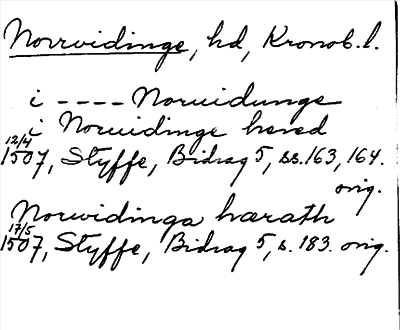 Norrvidinge, hd, Kronob. l.
i ---- Noruidunge
i Noruidinge hered
12/4
1507, Styffe, Bidrag 5, ss. 163, 164.
orig.
Norwidinga hærath
17/5
1507, Styffe, Bidrag 5, s. 183. orig.